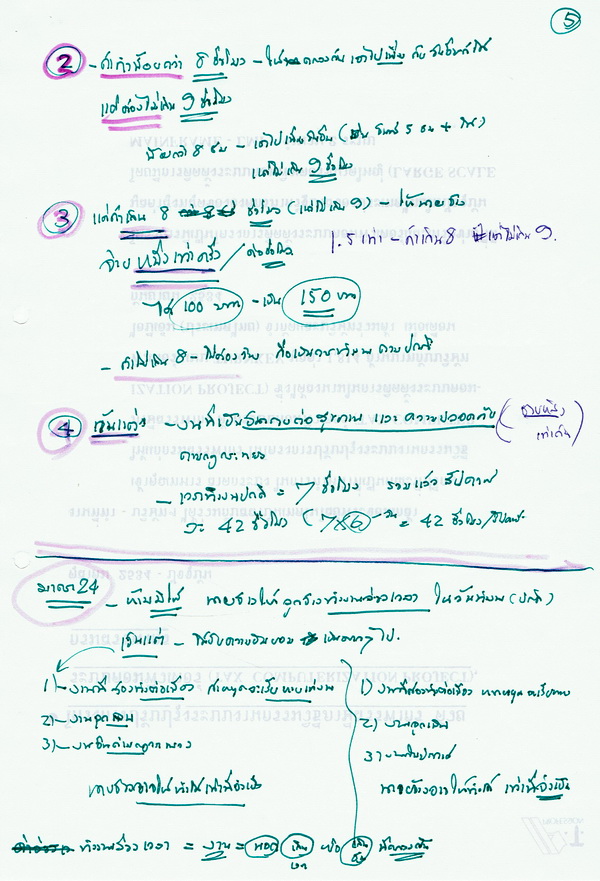 5
2 - ถ้าน้อยกว่า 8 ชั่วโมง - ให้ตกลงกัน เอาไปเพิ่ม กับ วันอื่นก็ได้
แต่ต้องไม่เกิน 9 ชั่วโมง
น้อยกว่า 8 ชม - เอาไปเพิ่มวันอื่น
แต่ไม่เกิน 9 ชั่วโมง
3 แต่ถ้าเกิน 8 ชั่วโมง (แต่ไม่เกิน 9) - ให้นายจ้าง
1.5 เท่า - ถ้าเกิน 8 แต่ไม่เกิน 9.
จ่าย หนึ่งเท่าครึ่ง / ต่อชั่วโมง
ได้ 100 บาท - เป็น 150 บาท
- ถ้าไม่เกิน 8 -
4 เว้นแต่ - งานที่เป็นอันตรายต่อสุขภาพ และ ความปลอดภัย
ตามกฎกระทรวง
- เวลาทำงานปกติ = 7 ชั่วโมง รวมแล้ว สัปดาห์
ละ 42 ชั่วโมง (7x6 วัน = 42 ชั่วโมง/สัปดาห์
มาตรา 24 - ห้ามมิให้ นายจ้างให้ลูกจ้างทำงานล่วงเวลา ในวันทำงาน (ปกติ)
เว้นแต่ - ได้รับความยินยอม เป็นคราวๆ ไป.
1) - งานที่ต้องทำต่อเนื่อง ถ้าหยุดจะเสียหายแก่งาน
2) - งานฉุกเฉิน
3) - งานอื่นตามกฎกระทรวง
นายจ้างอาจให้ทำได้เท่าที่จำเป็น
1) งานที่ต้องทำต่อเนื่อง หากหยุด จะเสียหาย
2) งานฉุกเฉิน
3)
นายจ้างอาจให้ทำได้ เท่าที่จำเป็น
ทำงานล่วงเวลา = งาน =